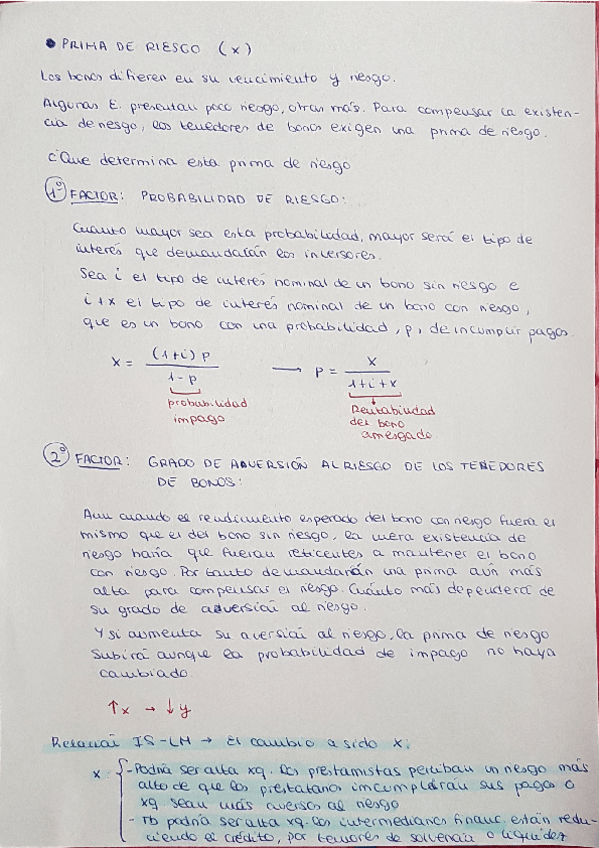 • PRIMA DE RIESGO (x)
Los bonos difieren en su vencimiento y riesgo.
Algunas E. presentan poco riesgo, otras más. Para compensar la existen-
cia de riesgo, los tenedores de bonos exigen una prima de riesgo.
¿Que determina esta prima de riesgo
1º FACTOR: PROBABILIDAD DE RIESGO:
Cuanto mayor sea esta probabilidad, mayor será el tipo de
interés que demandarán los inversores.
Sea i el tipo de interés nominal de un bono sin riesgo e
i+x el tipo de interés nominal de un bono con riesgo,
que es un bono con una probabilidad, p, de incumplir pagos.
x = (1+i) p / 1-p → p = x / 1+i+x
probabilidad impago
Rentabilidad del bono arriesgado
2º FACTOR: GRADO DE ADVERSIÓN AL RIESGO DE LOS TENEDORES
DE BONOS:
Aun cuando el rendimiento esperado del bono con riesgo fuera el
mismo que el del bono sin riesgo, la mera existencia de
riesgo haría que fueran reticentes a mantener el bono
con riesgo. Por tanto demandarán una prima aún más
alta para compensar el riesgo. Cuánto más dependerá de
su grado de adversión al riesgo.
Y si aumenta su aversión al riesgo, la prima de riesgo
subirá aunque la probabilidad de impago no haya
cambiado.
↑x → ↓y
Relación IS-LM → El cambio a sido x:
x { - Podría ser alta xq. los prestamistas perciban un riesgo más
alto de que los prestatarios incumplirán sus pagos o
xq sean más aversos al riesgo
- tb podría ser alta xq. los intermediarios financ. están redu-
ciendo el crédito, por temores de solvencia o liquidez